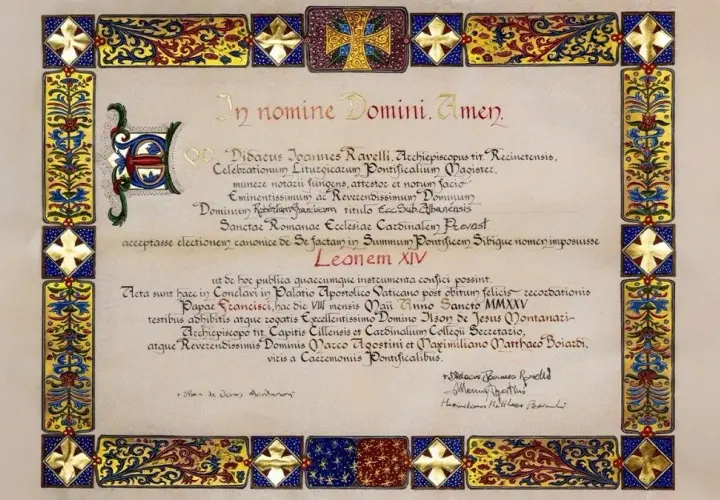 In nomine Domini. Amen.
Ego
Didacus Joannes Ravelli, Archiepiscopus tit. Recinetensis,
Celebrationum Liturgicarum Pontificalium Magister,
munere notarii fungens, attestor et notum facio
Eminentissimum ac Reverendissimum Dominum
Dominum Robertum Franciscum titulo Ecc. Sub. Albanensis
Sanctae Romanae Ecclesiae Cardinalem Prevost
acceptasse electionem canonice de Se factam in Summum Pontificem Sibique nomen imposuisse
Leonem XIV
ut de hoc publica quaecumque instrumenta confici possint.
Acta sunt haec in Conclavi in Palatio Apostolico Vaticano post obitum felicis recordationis
Papae Francisci, hac die VIII mensis Maii Anno Sancto MMXXV
testibus adhibitis atque rogatis Excellentissimo Domino Ilson de Jesus Montanari
Archiepiscopo tit. Capitis Cillensis et Cardinalium Collegii Secretario,
atque Reverendissimis Dominis Marco Agostini et Maximiliano Matthaeo Boiardi,
viris a Caeremoniis Pontificalibus.
+ Didacus Joannes Ravelli
+ Ilson de Jesus Montanari
Marcus Agostini
Maximilianus Matthaeus Boiardi